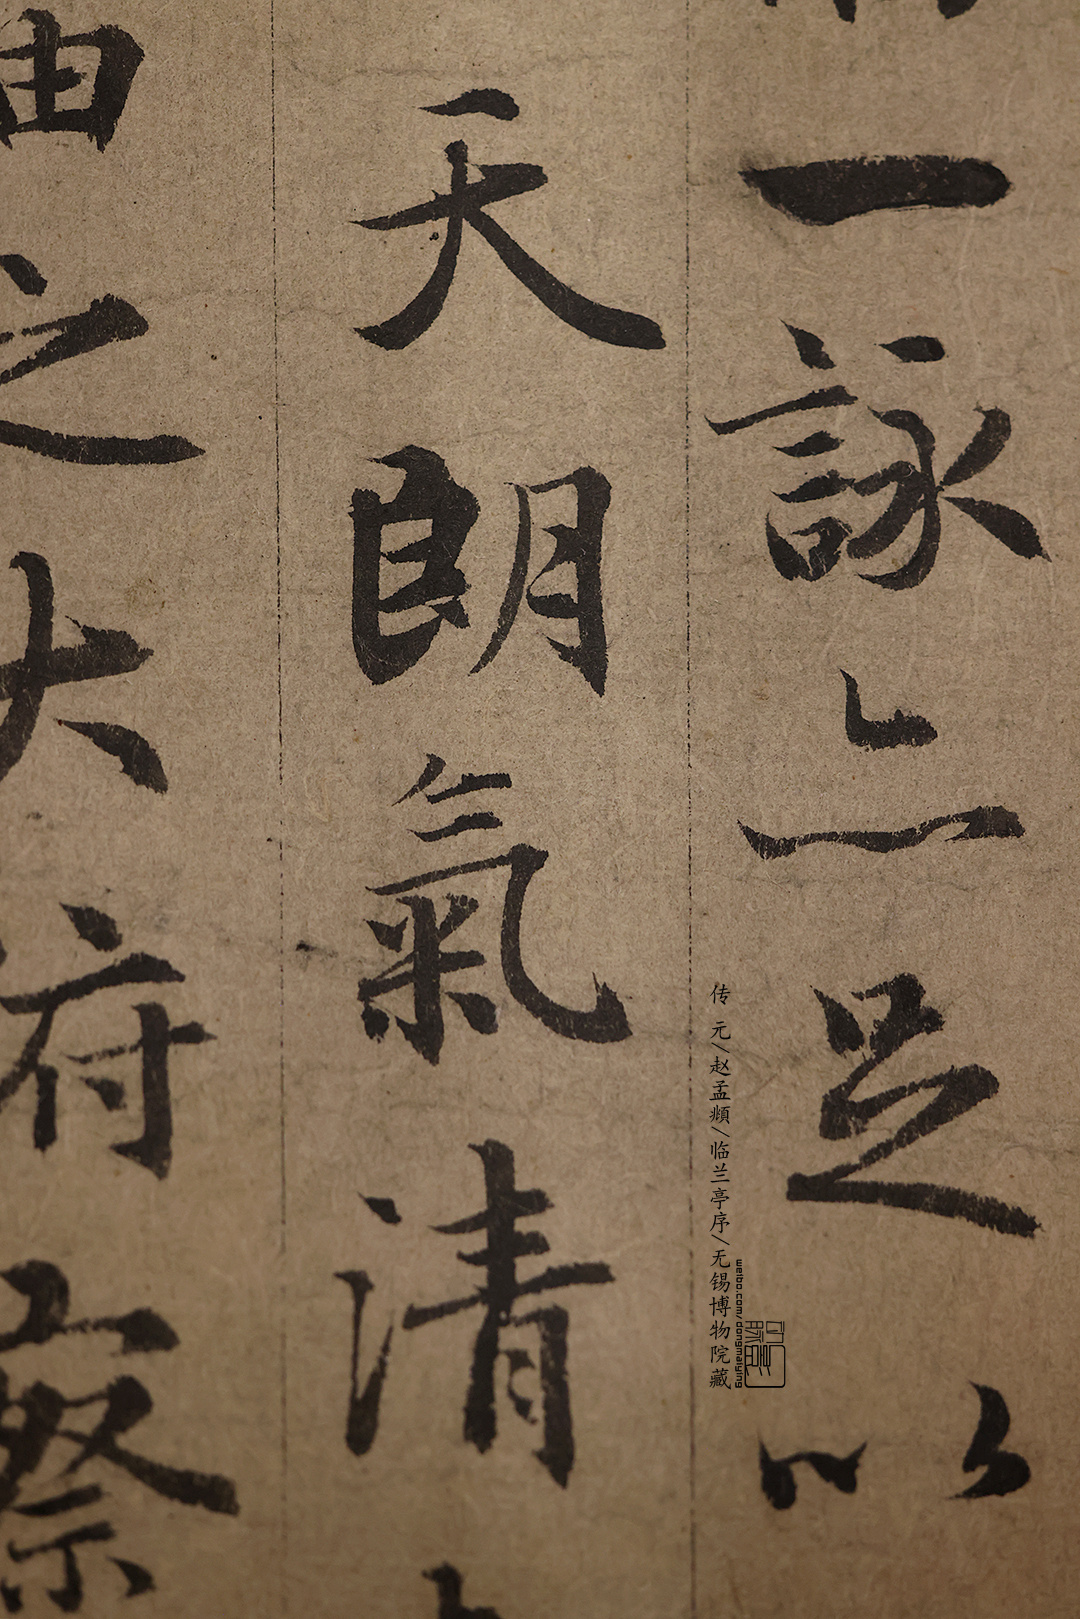 一詠亦足以
天朗氣清
由之大府察
传 元/赵孟頫/临兰亭序/无锡博物院藏
weibo.com/dongmaiying